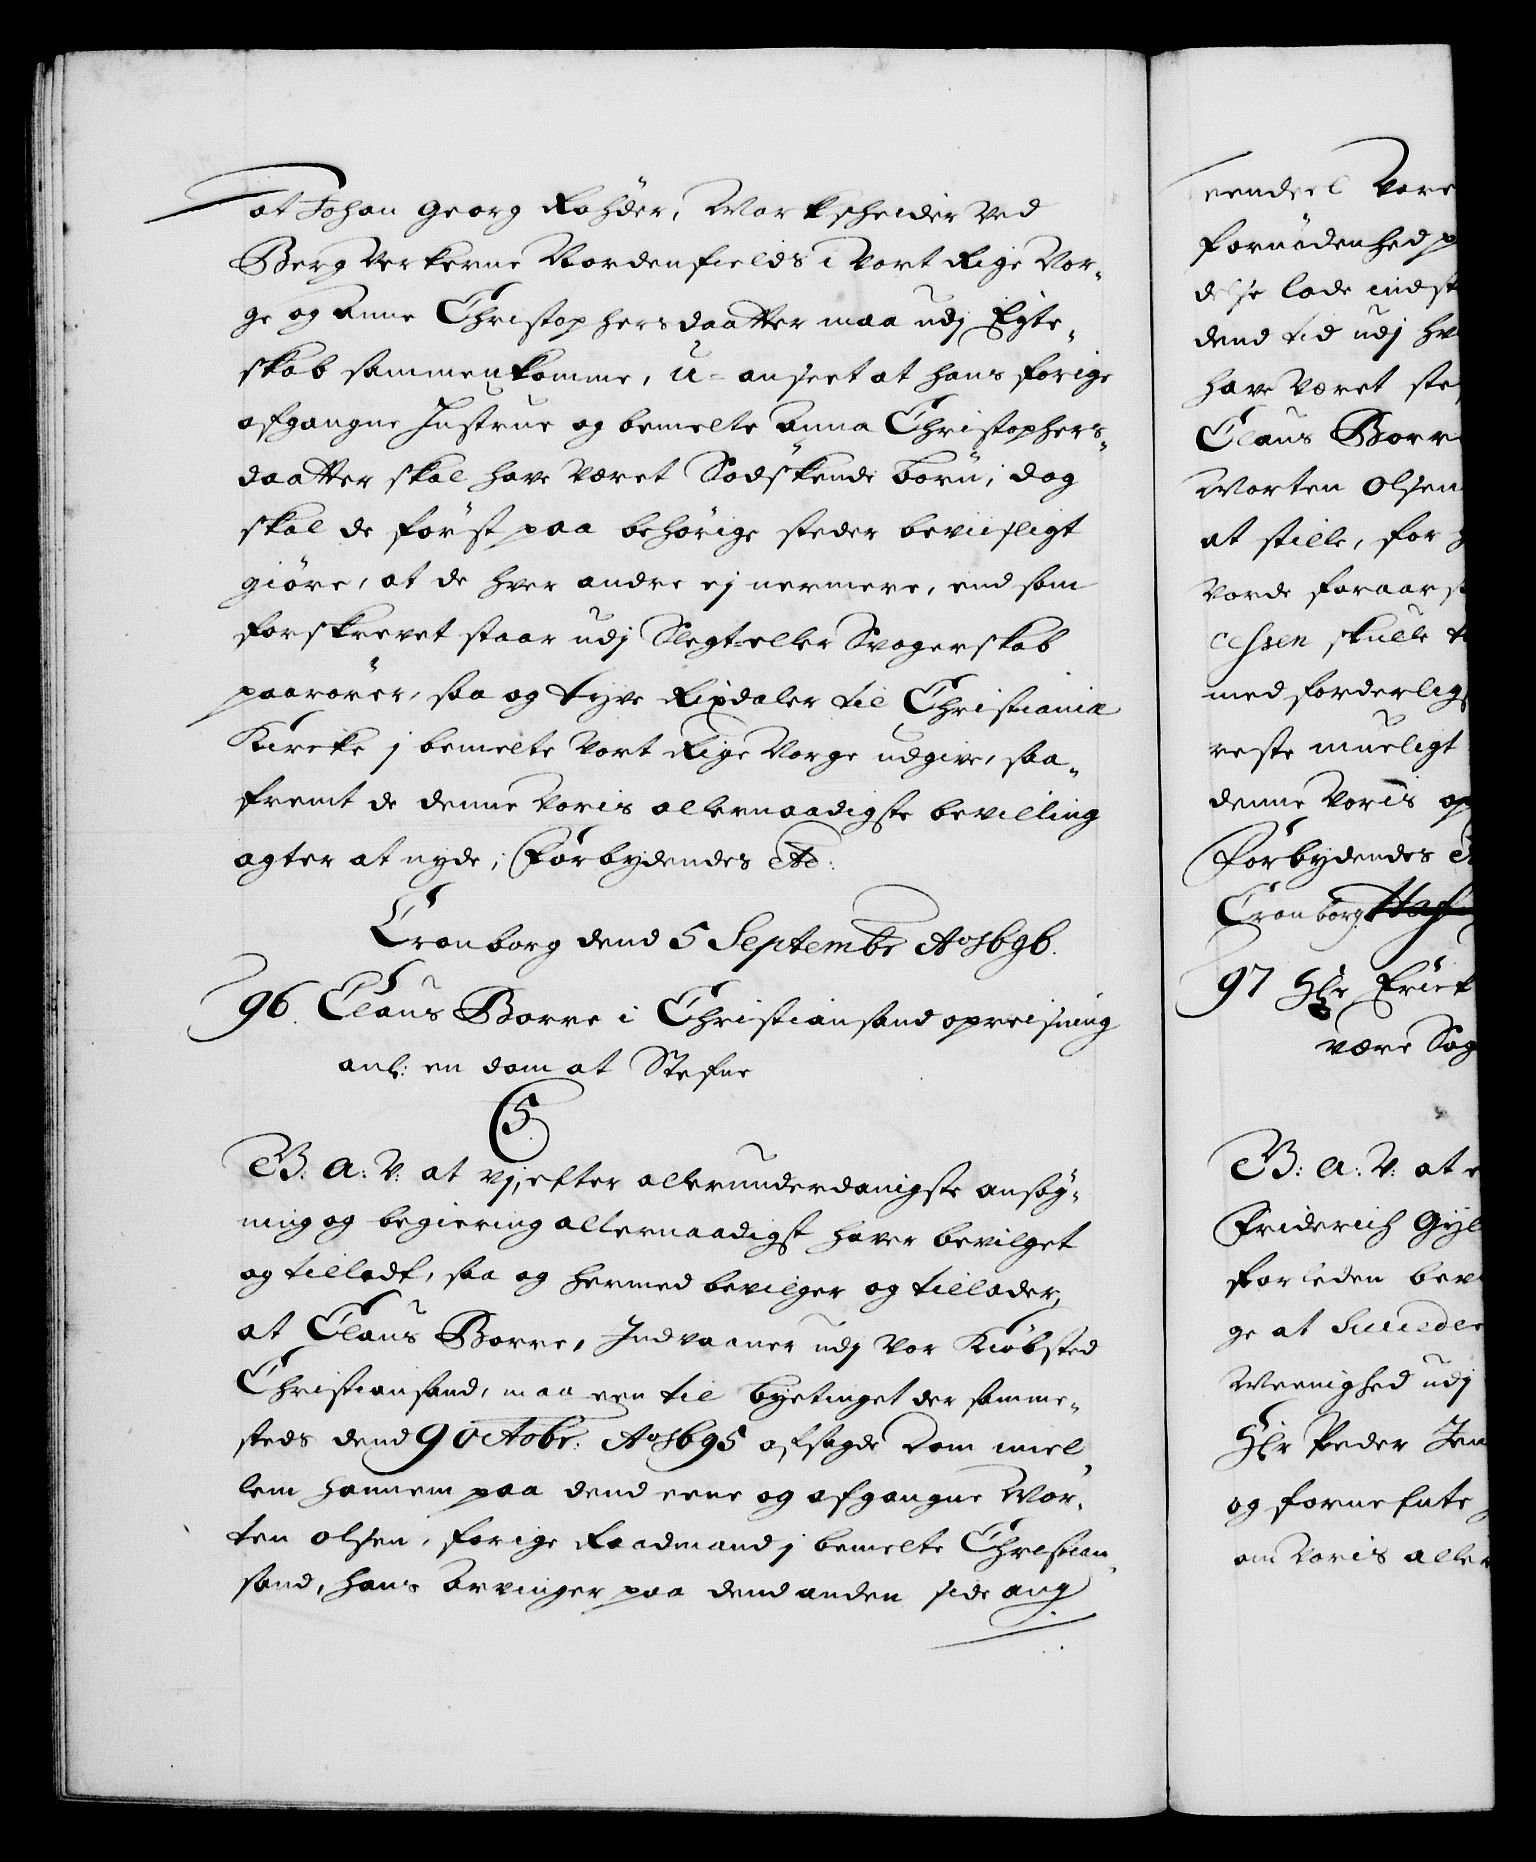 at Johan Georg Rohder, Markscheider ved
Bergverkerne Nordenfields i Vort Rige Nor-
ge og Anne Christophersdaatter maa udj Egte-
skab sammenkomme, u-anseet at hans forige
afgangne Hustrue og bemelte Anna Christophers-
daatter skal have veret Sødskende børn; dog
skal de først paa behørige steder beviisligt
giøre, at de hver andre ej nermere, end som
forskrevet staar udj Slegt- eller Svogerskab
paarører, saa og tyve Rixdaler til Christiania
Kircke j bemelte Vort Rige Norge udgive, saa-
fremt de denne Voris allernaadigste bevilling
agter at nyde; Forbydendes etc:
Cronborg dend 5 Septembr Ao 1696.
96. Claus Borre i Christiansand opreisning
anl: en dom at Stefne
5.
B: A: V: at vj, efter allerunderdanigste ansøg-
ning og begiering allernaadigst haver bevilget
og tilladt, saa og hermed bevilger og tillader,
at Claus Borre, Indvaaner udj vor Kiøbsted
Christiansand, maa een til byetinget der samme-
steds dend 9 Octobr: Ao 1695 afsagde Dom mel-
lem hannem paa dend eene og afgangne Mor-
ten Olsen, forige Raadmand j bemelte Christian-
sand, hans Arvinger paa dend anden side ang
eendeel Vare
fornødenhed p
delse lade indst
dend tid udj hv
have veret ste
Claus Borr
Morten Olsen
at stille, for
vorde foraars
cessen skulle
med forderlig
reste mueligt
denne Voris op
Forbydendes
Cronborg. Haf
97 Hr Erick
være Sog
B: A: V: at e
Friderich Gyl
forleden bev
ge at
Meenighed udj
Hr Peder Jen
og fornefnte
om Voris aller